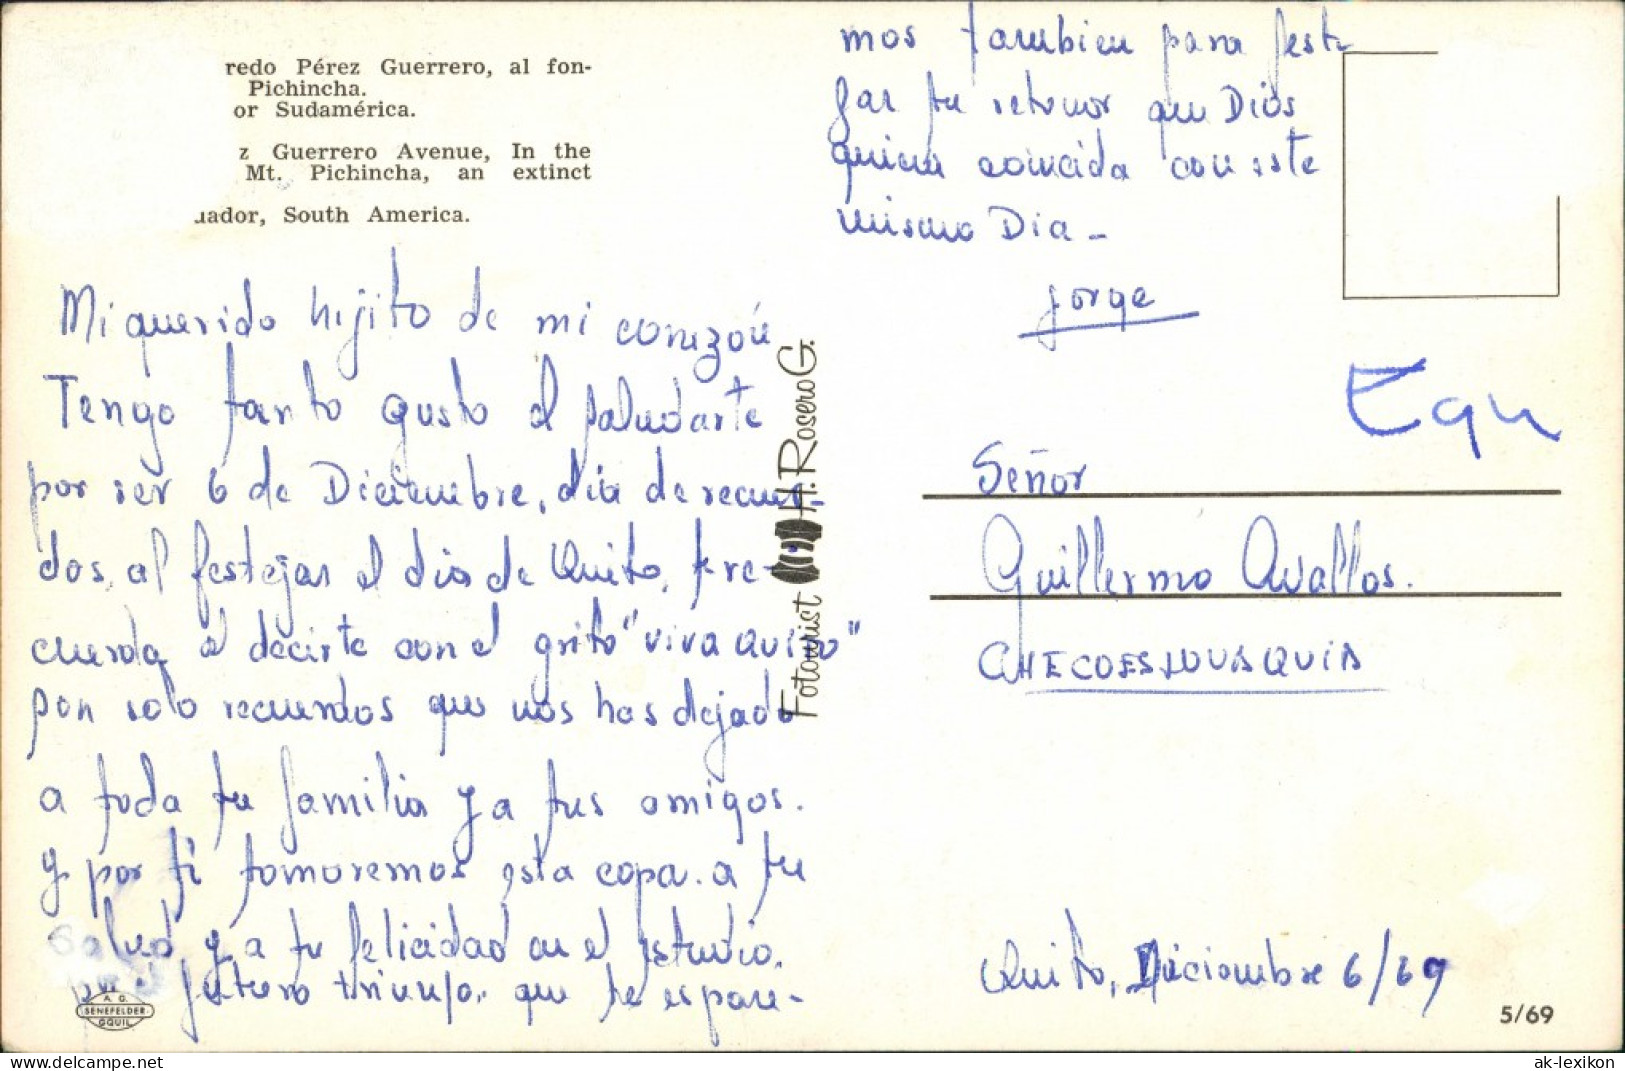 redo Pérez Guerrero, al fon-
Pichincha.
or Sudamérica.
z Guerrero Avenue, In the
Mt. Pichincha, an extinct
uador, South America.
Mi querido hijito de mi corazón
Tengo tanto gusto el saludarte
por ser 6 de Diciembre, día de recuer-
dos, al festejar el dia de Quito, te re-
cuerda el decirte con el grito "viva Quito"
son solo recuerdos que nos has dejado
a toda tu familia y a tus amigos.
y por ti tomaremos esta copa. a tu
Salud y a tu felicidad en el estudio.
futuro triunfo. que te espere-
mos tambien para feste
jar tu retorno que Dios
quiera coincida con este
mismo Dia -
Jorge
Equ
Señor
Guillermo Avallos.
CHECOESLOVAQUIA
Quito, Diciembre 6/69
Fotourist H. Rosero G.
A. G.
SENEFELDER
GQUIL
5/69
delcampe.net
ak-lexikon